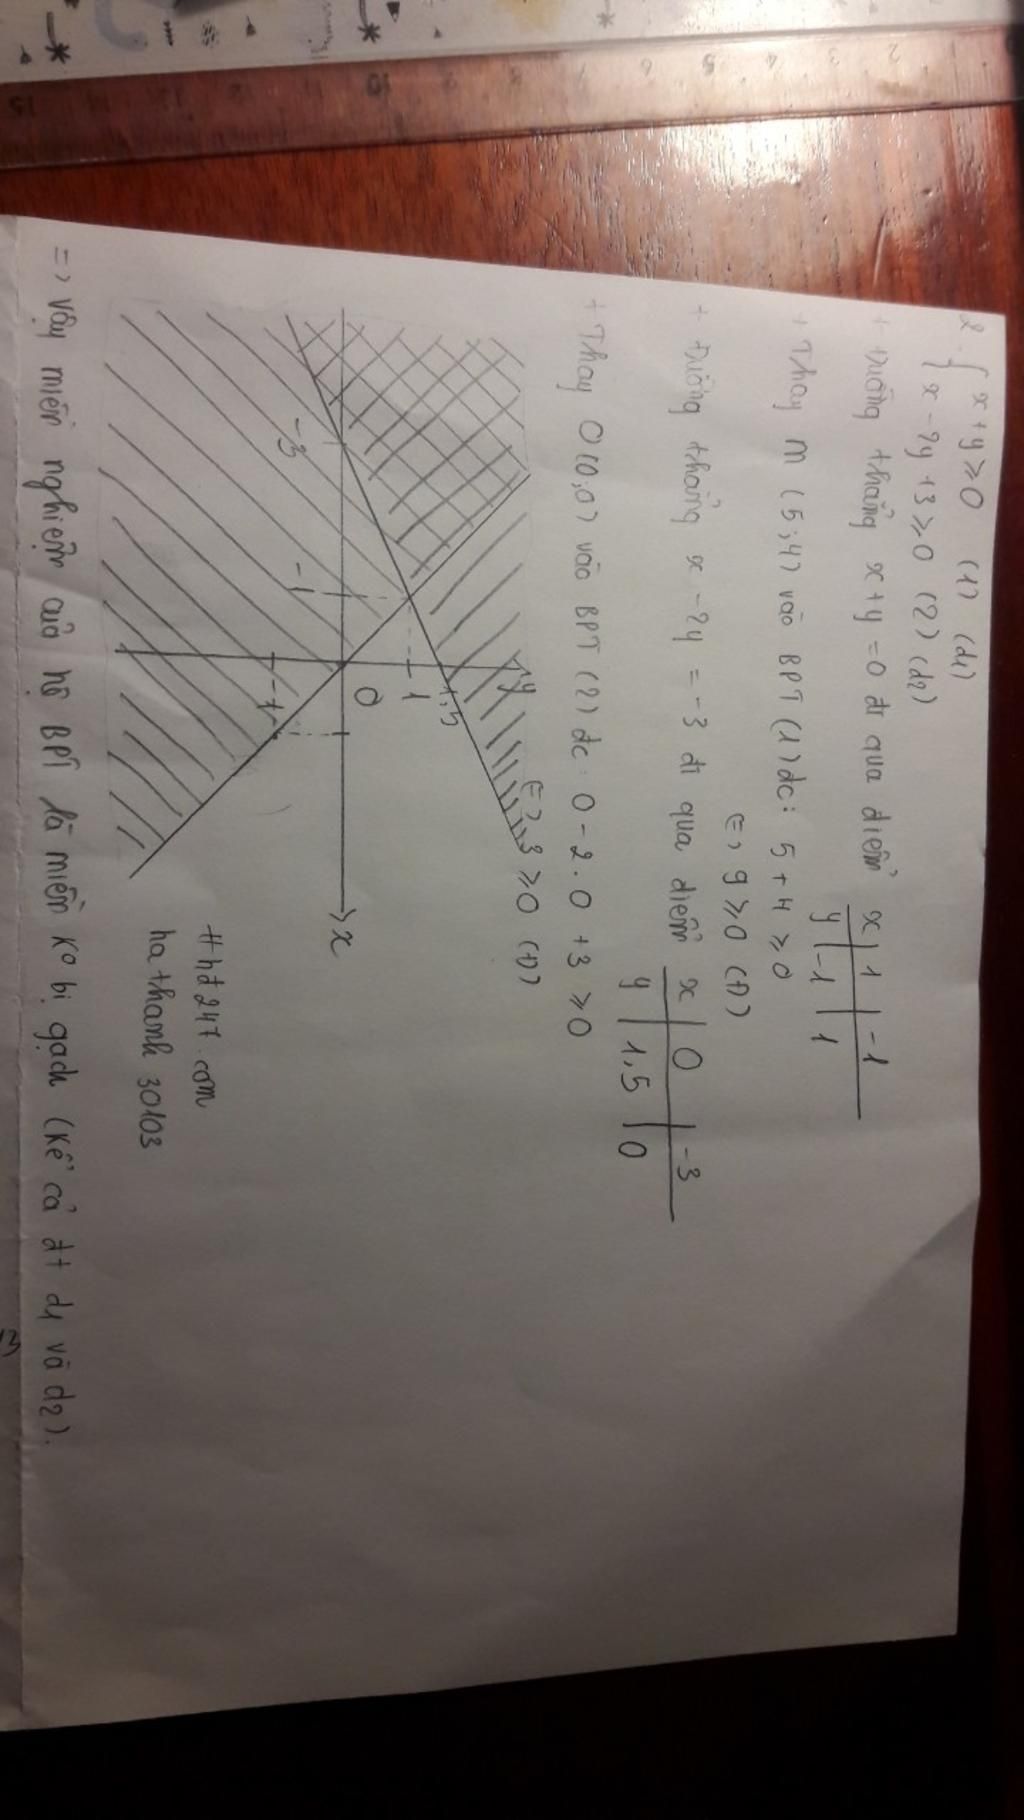 2. { x + y ⩾ 0 (1) (d1)
x - 2y + 3 ⩾ 0 (2) (d2)
+ Đường thẳng x + y = 0 đi qua điểm
x | 1 | -1
y | -1 | 1
+ Thay M (5;4) vào BPT (1) đc: 5 + 4 ⩾ 0
<=> 9 ⩾ 0 (Đ)
+ Đường thẳng x - 2y = -3 đi qua điểm
x | 0 | -3
y | 1,5 | 0
+ Thay O(0;0) vào BPT (2) đc: 0 - 2.0 + 3 ⩾ 0
<=> 3 ⩾ 0 (Đ)
y
1,5
1
-3
-1
O
x
-1
#hd247.com
hathanh30103
=> Vậy miền nghiệm của hệ BPT là miền ko bị gạch (kể cả đt d1 và d2).